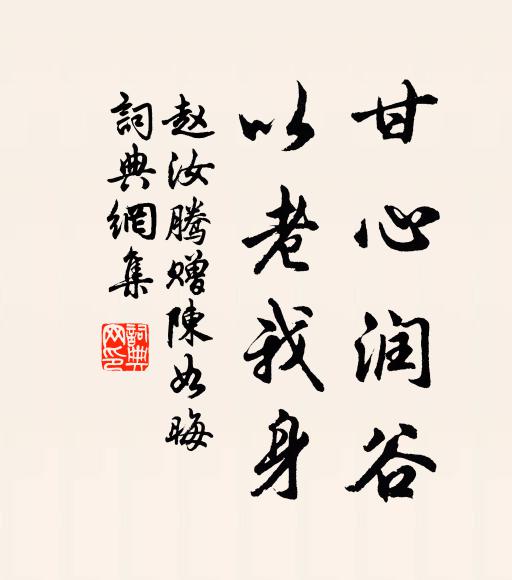 甘心润谷
以老我身
赵汝腾赠陳如晦
詞典網集
詞典网印